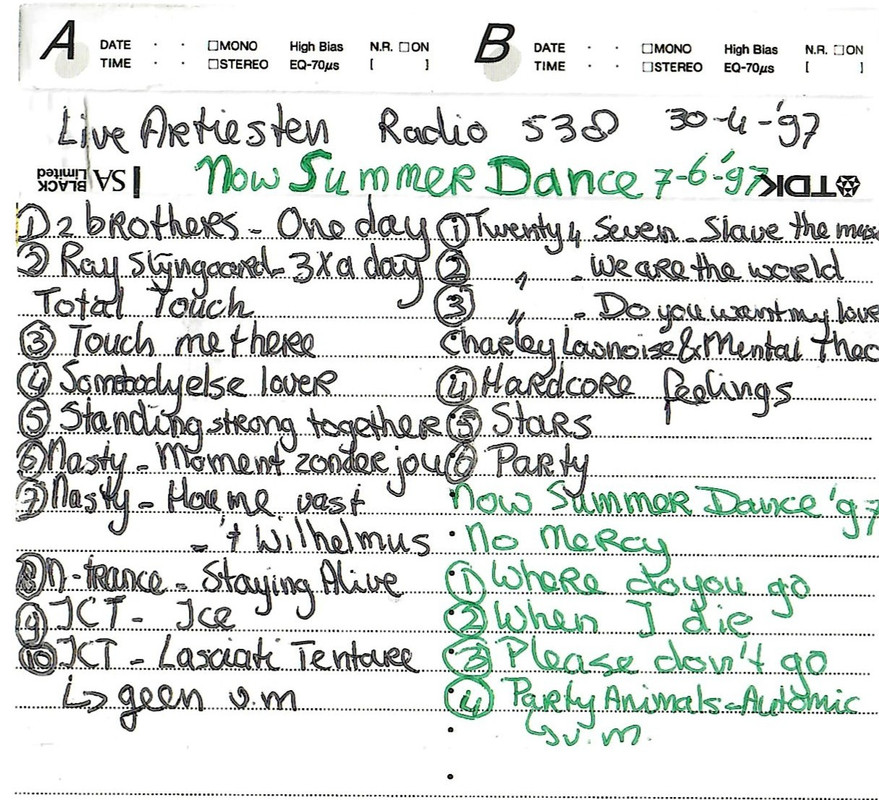 A DATE · · □MONO High Bias N.R. □ON
TIME · · □STEREO EQ-70μs [ ]
B DATE · · □MONO High Bias N.R. □ON
TIME · · □STEREO EQ-70μs [ ]
Live Artiesten Radio 538 30-4-'97
Now Summer Dance 7-6-'97
SA BLACK Limited
TDK
① 2 brothers - One day
② Ray Slyngaard - 3x a day
Total Touch
③ Touch me there
④ Sombodyelse lover
⑤ Standing strong together
⑥ Nasty - Moment zonder jou
⑦ Nasty - Hou me vast
- 't Wilhelmus
⑧ N-trance - Staying Alive
⑨ JCT - Ice
⑩ JCT - Lasciati Tentaree
↳ geen v.m
① Twenty 4 Seven - Slave the mus
② " - We are the world
③ " - Do you want my love
Charley Lownoise & Mental Theo
④ Hardcore feelings
⑤ Stars
⑥ Party
Now Summer Dance '97
No Mercy
① Where do you go
② When I die
③ Please don't go
④ Party Animals - Automic
↳ v.m